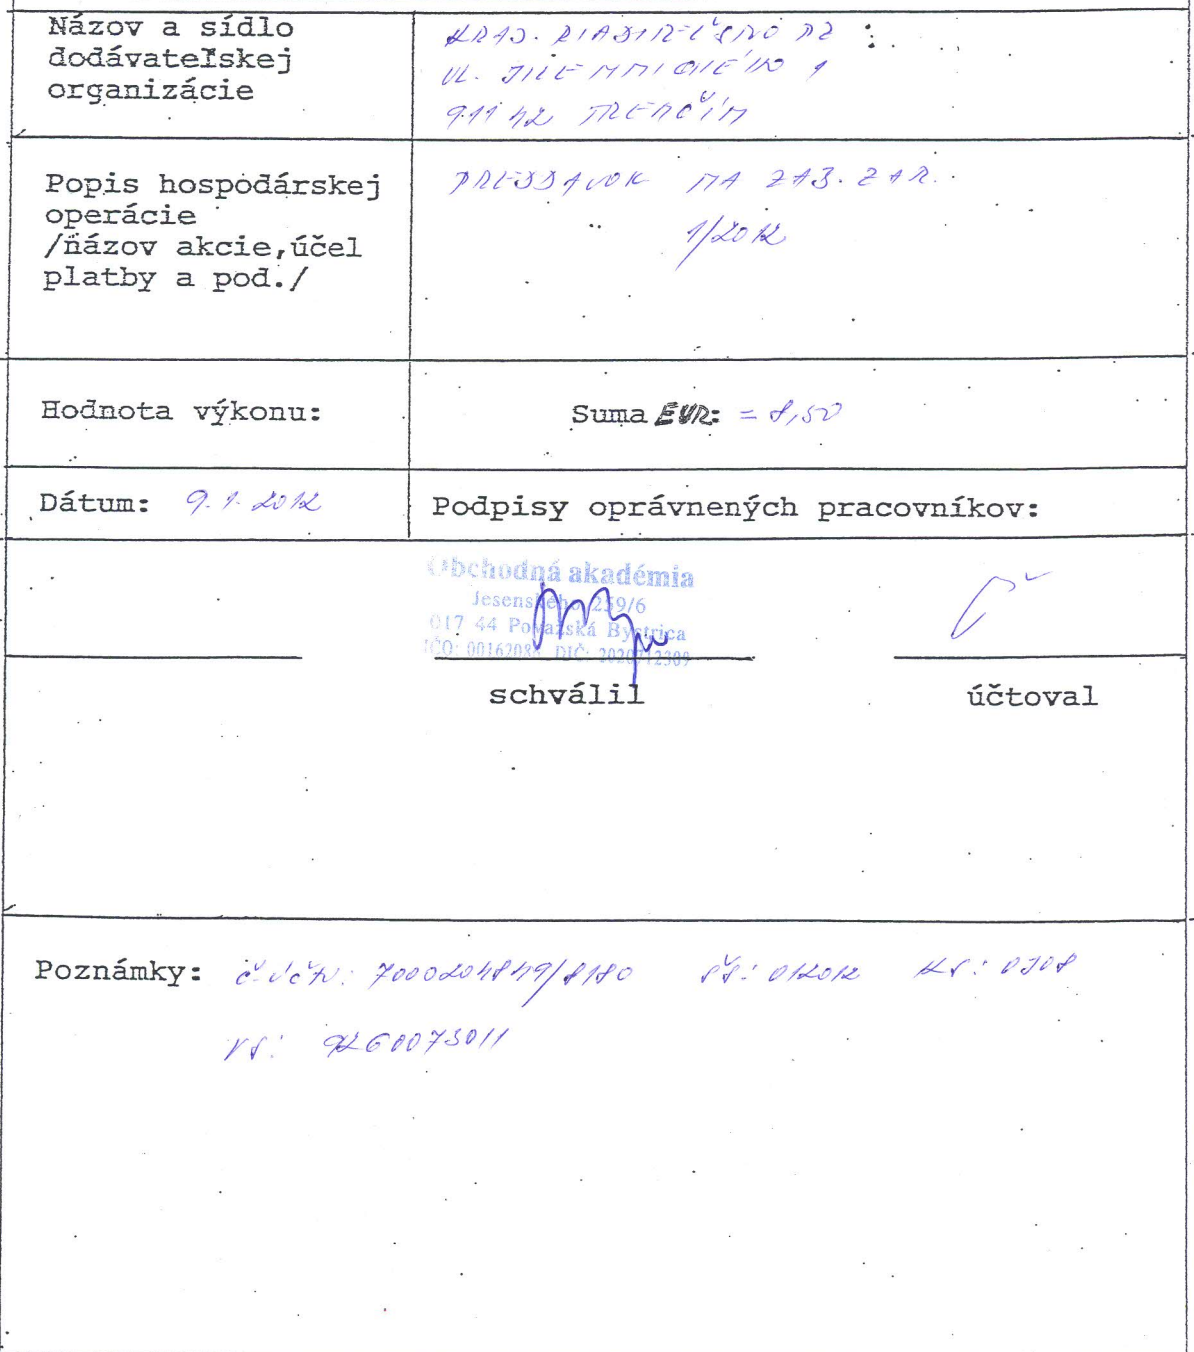 Názov a sídlo
dodávateľskej
organizácie
KRAJ. RIADITEĽSTVO PZ
UL. JILEMNICKÉHO 1
911 42 TRENČÍN
Popis hospodárskej
operácie
/názov akcie,účel
platby a pod./
PREDDAVOK NA ZAB. ZAR.
1/2012
Hodnota výkonu:
Suma EUR: = 8,50
Dátum: 9.1.2012
Podpisy oprávnených pracovníkov:
Obchodná akadémia
Jesenského 259/6
017 44 Považská Bystrica
IČO: 00162088 DIČ: 2020712309
schválil
účtoval
Poznámky: č. účtu: 7000204849/8180 ŠS: 012012 KS: 0308
VS: 9260073011